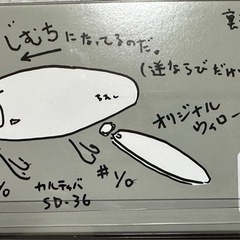 裏
じむちになってるのだ。
(逆ならびだけ
オリジナル
ウィロー
#1/0
カルティバ
SD-36